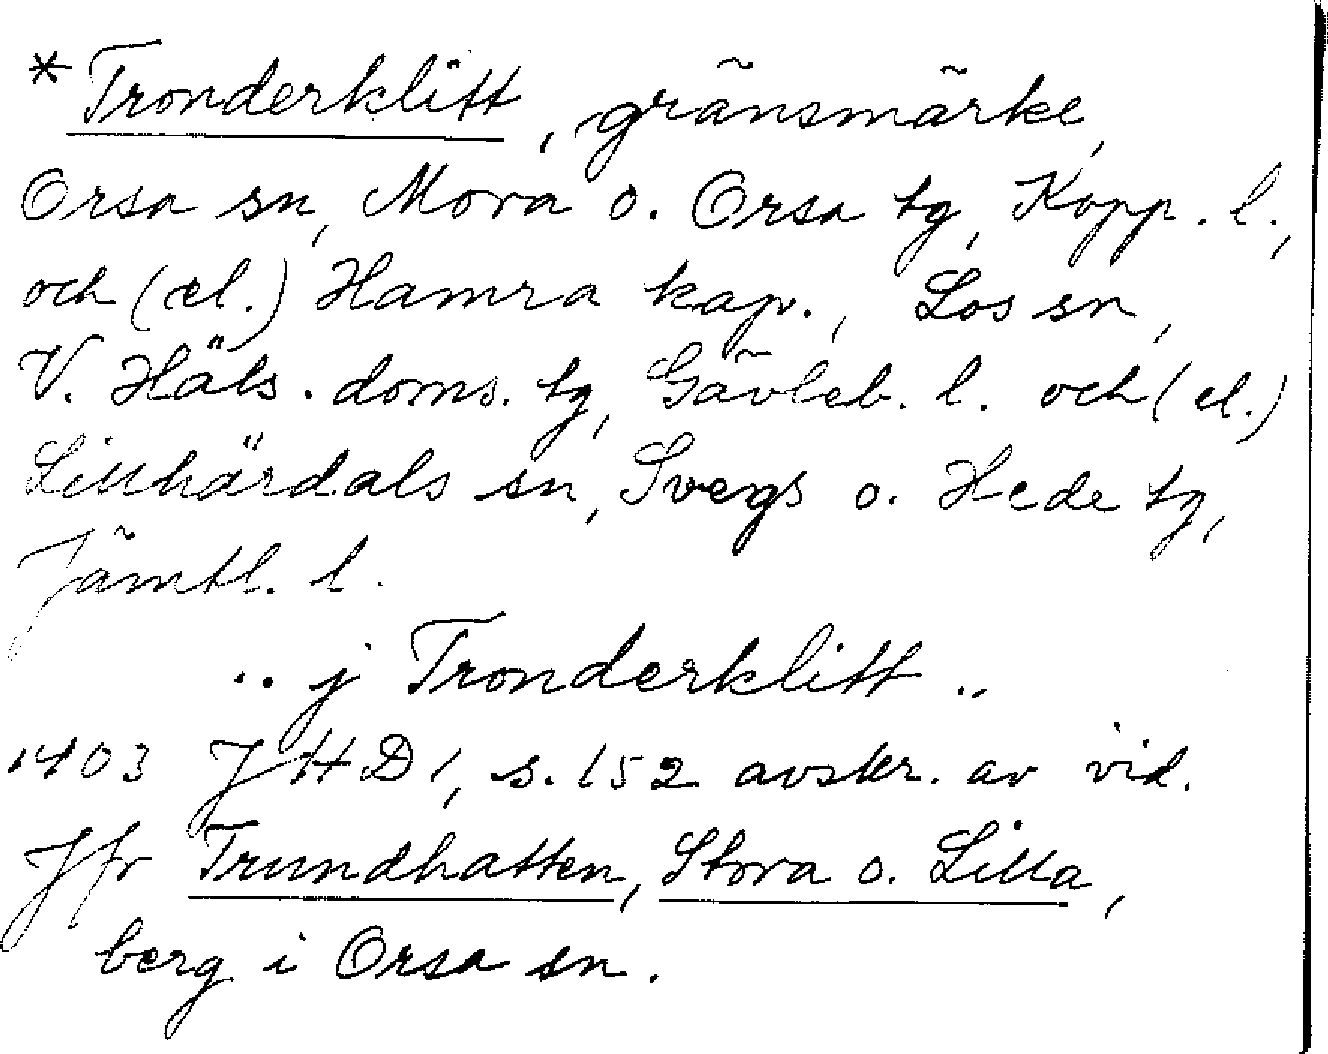 *Tronderklitt, gränsmärke,
Orsa sn, Mora o. Orsa tg, Kopp. l.,
och (el.) Hamra kap., Los sn,
V. Häls. doms. tg, Gävleb. l. och (el.)
Lillhärdals sn, Svegs o. Hede tg,
Jämtl. l.
.. j Tronderklitt ..
1403 JHD 1, s. 152 avskr. av vid.
Jfr Trundhatten, Stora o. Lilla,
berg i Orsa sn.